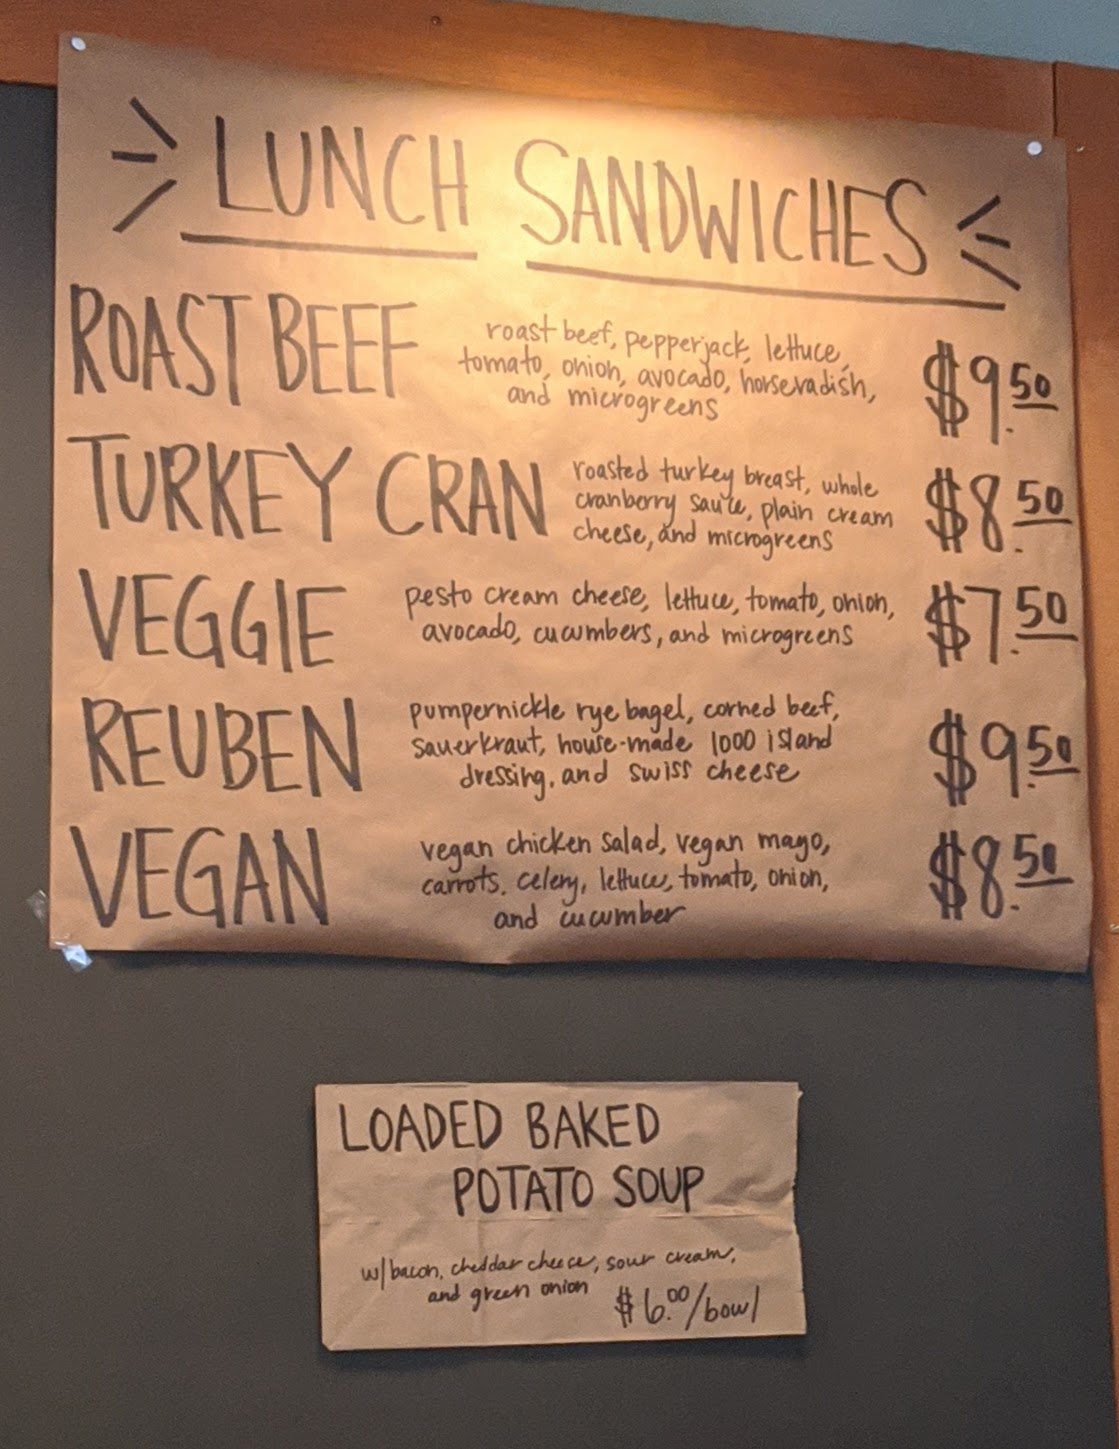 LUNCH SANDWICHES
ROAST BEEF
roast beef, pepperjack, lettuce,
tomato, onion, avocado, horseradish,
and microgreens
$9.50
TURKEY CRAN
roasted turkey breast, whole
cranberry sauce, plain cream
cheese, and microgreens
$8.50
VEGGIE
pesto cream cheese, lettuce, tomato, onion,
avocado, cucumbers, and microgreens
$7.50
REUBEN
pumpernickle rye bagel, corned beef,
sauerkraut, house-made 1000 island
dressing, and swiss cheese
$9.50
VEGAN
vegan chicken salad, vegan mayo,
carrots, celery, lettuce, tomato, onion,
and cucumber
$8.50
LOADED BAKED
POTATO SOUP
w/bacon, cheddar cheese, sour cream,
and green onion
$6.00/bowl